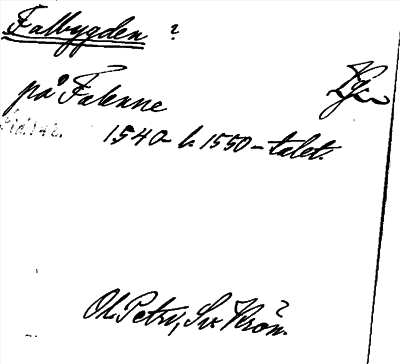 Falbygden ?
på Falenne
Sid. 142.
1540 - 1550-talet.
Ol. Petri, Sv. Krön.